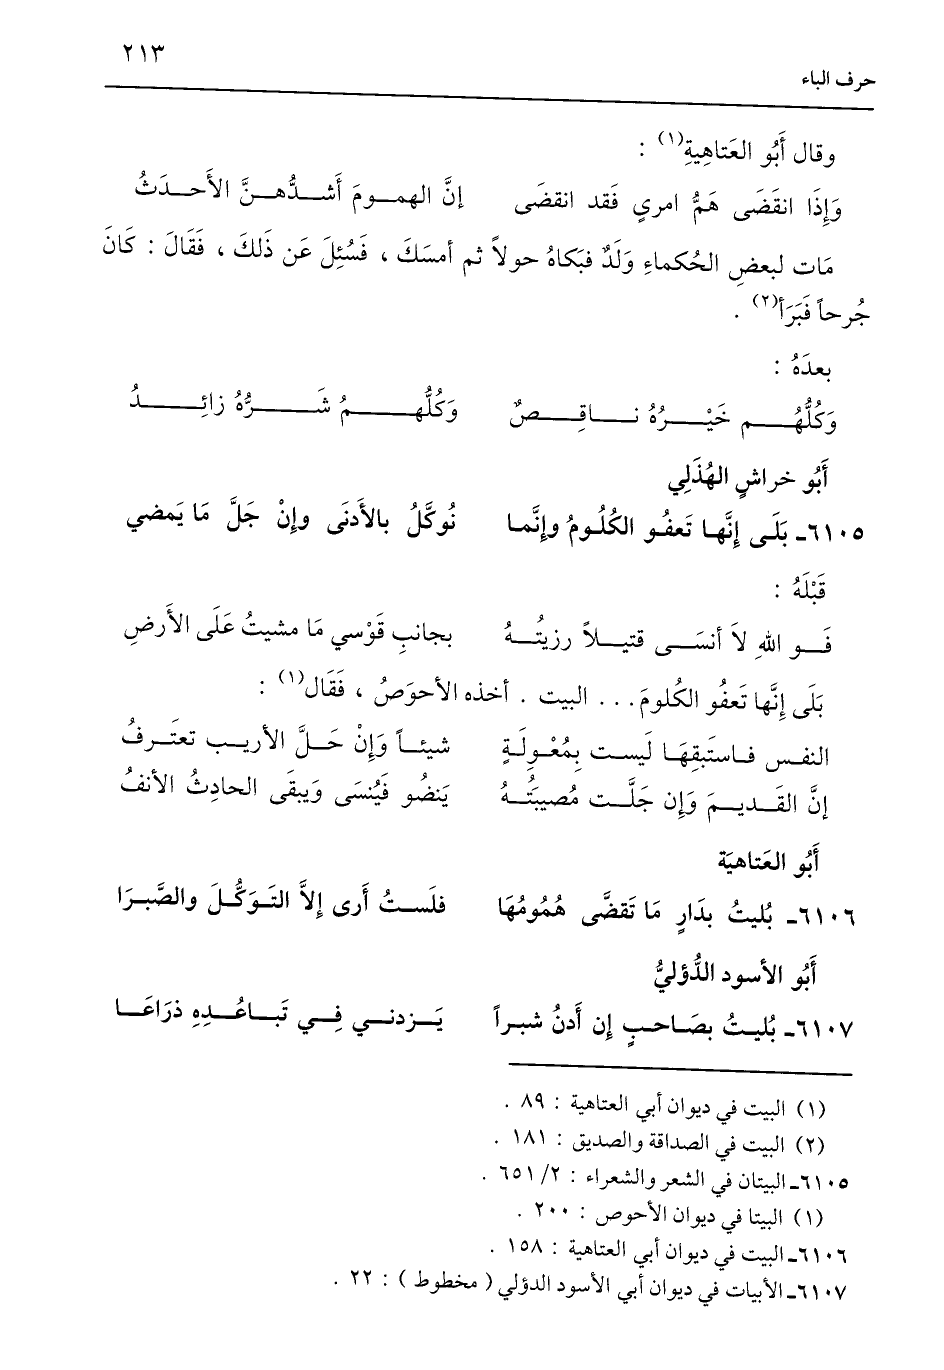 حرف الباء ٢١٣
وقال أَبُو العَتاهِيةِ(١) :
وَإِذَا انقَضَى هَمُّ امري فَقد انقضَى إنَّ الهمومَ أَشدُّهنَّ الأَحدَثُ
مَات لبعضِ الحُكماءِ وَلَدٌ فبَكاهُ حولاً ثم أمسَكَ ، فَسُئِلَ عَن ذَلكَ ، فَقَالَ : كَانَ
جُرحاً فَبَرَأ(٢) .
بعدَهُ :
وَكُلُّهُم خَيْرُهُ نَاقِصٌ وَكُلُّهمُ شَرُّهُ زائِدُ
أَبُو خراشٍ الهُذَلِي
٦١٠٥ـ بَلَى إِنَّها تَعفُو الكُلُومُ وإنَّما نُوكَّلُ بالأَدنَى وإنْ جَلَّ مَا يَمضي
قَبْلَهُ :
فَو اللهِ لاَ أنسَى قتيلاً رزيتُهُ بجانبِ قَوْسي مَا مشيتُ عَلَى الأرضِ
بَلَى إِنَّها تَعفُو الكُلومَ . . . البيت . أخذه الأحوَصُ ، فَقَال(١) :
النفس فاستَبقِهَا لَيست بِمُعْولَةٍ شيئاً وَإنْ حَلَّ الأريب تعتَرفُ
إنَّ القَديمَ وَإن جَلَّت مُصيبَتُهُ يَنضُو فَيُنسَى وَيبقَى الحادِثُ الأنفُ
أَبُو العَتاهيَة
٦١٠٦ـ بُليتُ بدَارٍ مَا تَقضَّى هُمُومُهَا فلَستُ أَرى إلاَّ التَوَكُّلَ والصَّبرَا
أَبُو الأسود الدُّؤليُّ
٦١٠٧ـ بُليتُ بصَاحبٍ إن أَدنُ شبراً يَزدني فِي تَباعُدِهِ ذرَاعَا
(١) البيت في ديوان أبي العتاهية : ٨٩ .
(٢) البيت في الصداقة والصديق : ١٨١ .
٦١٠٥ـ البيتان في الشعر والشعراء : ٢/ ٦٥١ .
(١) البيتا في ديوان الأحوص : ٢٠٠ .
٦١٠٦ـ البيت في ديوان أبي العتاهية : ١٥٨ .
٦١٠٧ـ الأبيات في ديوان أبي الأسود الدؤلي ( مخطوط ) : ٢٢ .